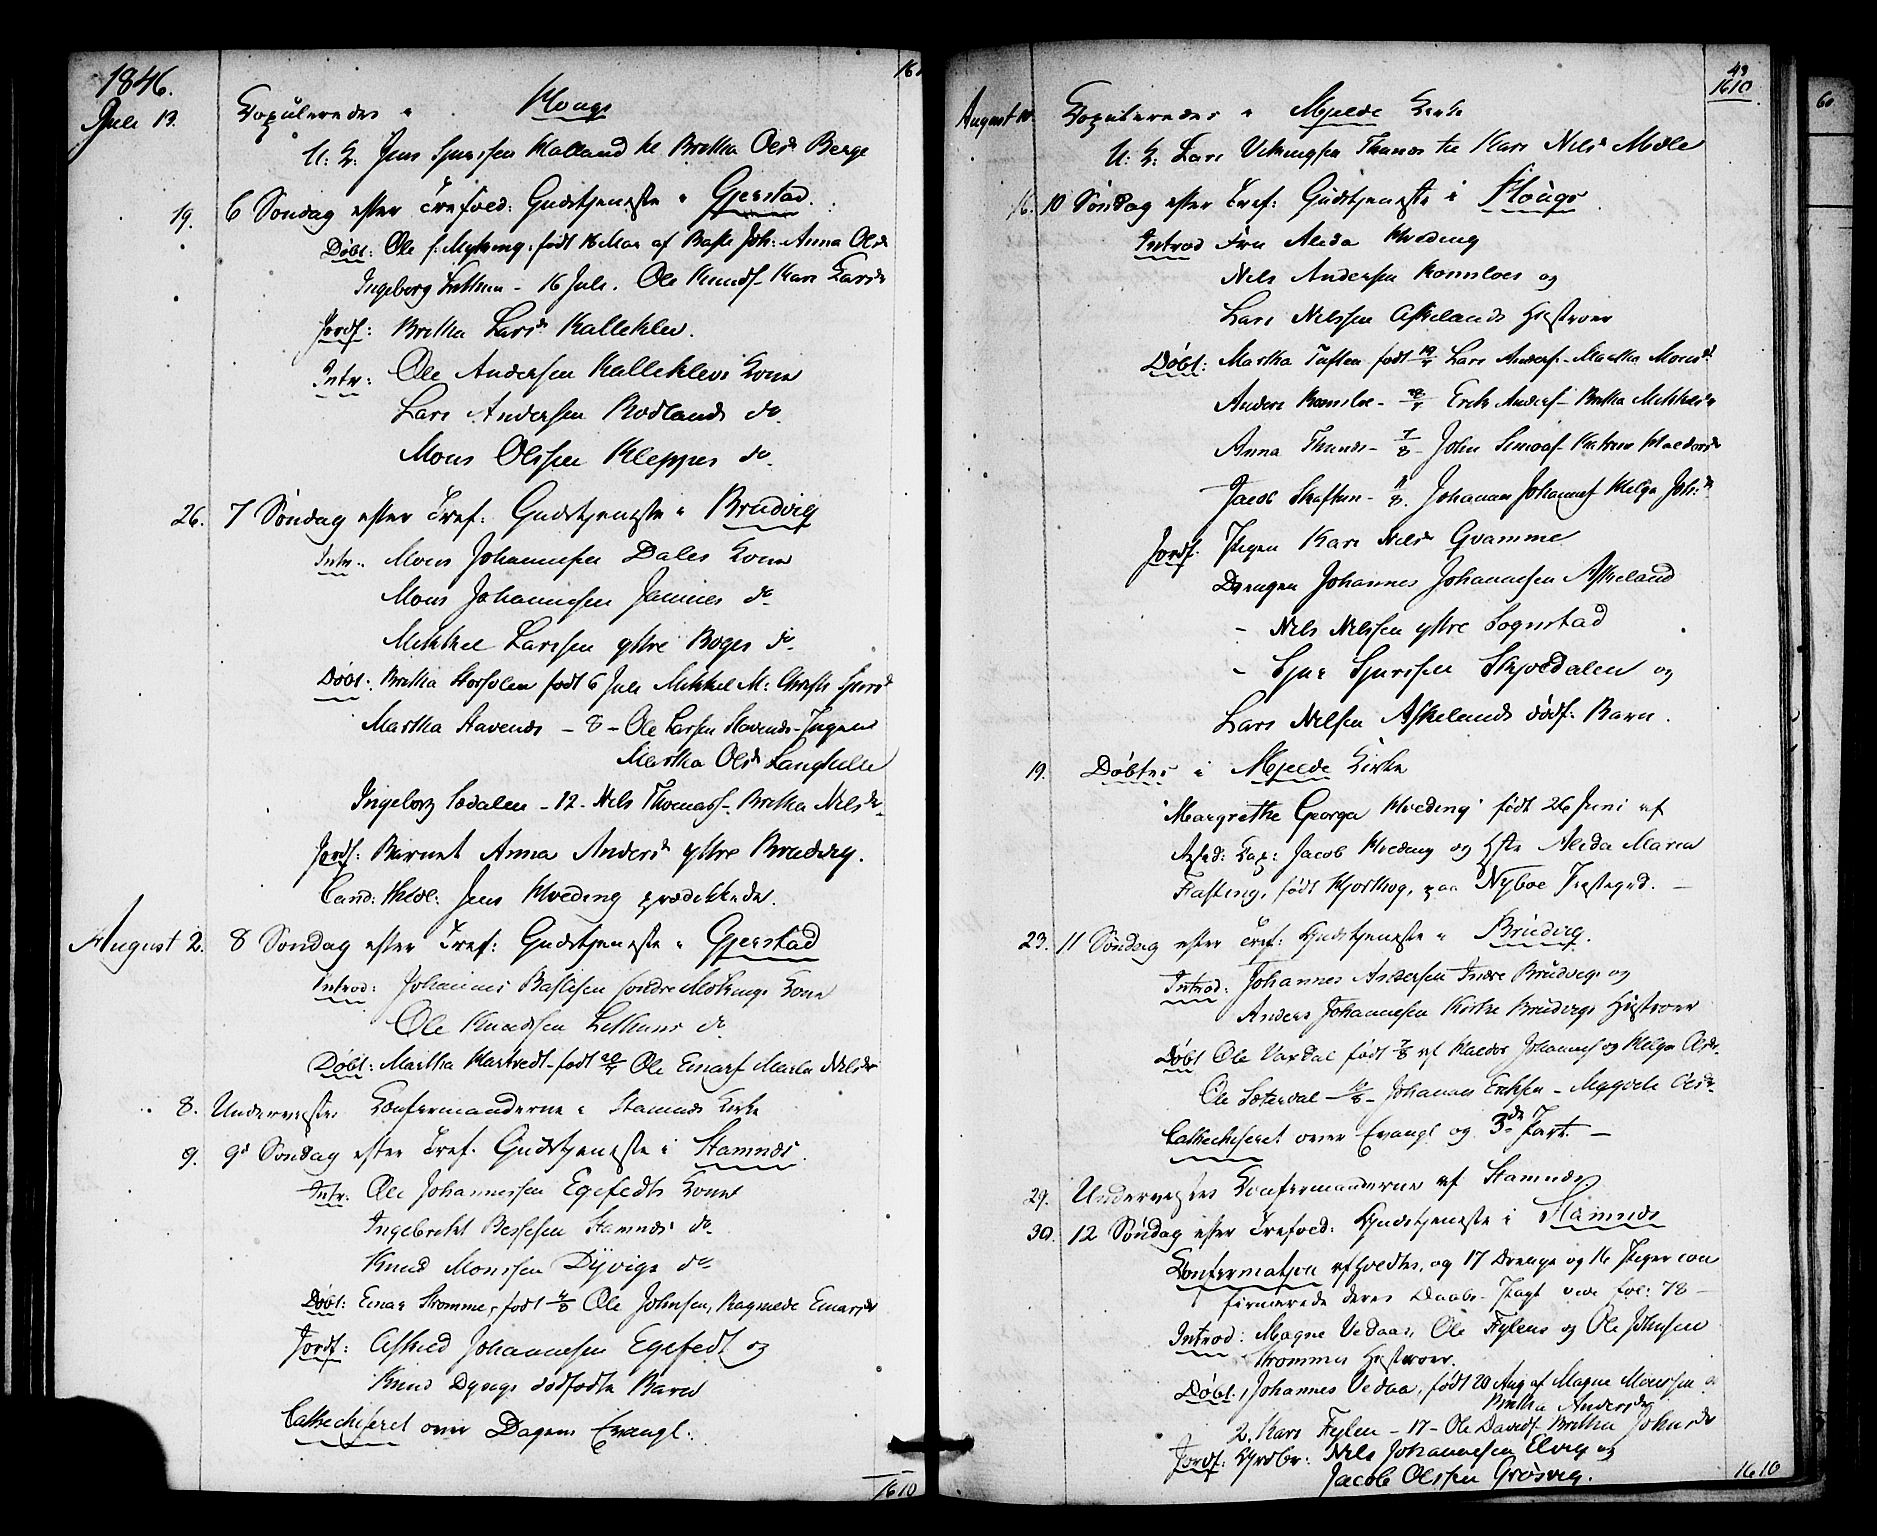 1846.
161
Juli 13. Copuleredes i Hougs
U: K: Jens Sjursen Halland til Britha Olsd Berge
19. 6 Söndag efter Trefold: Gudstjeneste i Gjerstad.
Döbt: Ole s: Myking, født 18 Mai af Johs: Anna Olsd
Ingeborg - 16 Juli. Ole Knuds- Kari Larsd
Jordf: Britha Larsd Kalleklev.
Intr: Ole Andersen Kalleklevs Kone
Lars Andersen Rodlands do
Mons Olssen Kleppes do
26. 7 Söndag efter Tref: Gudstjeneste i Brudvig
Intr: Mons Johannesen Dales Kone
Mons Johannesen Jamnes do
Mikkel Larssen ytre Boges do
Döbt: Britha Storsolen født 6 Juli Mikkel M: Sjursd
Martha Stavenes - 8 - Ole Larsen Stavenes - Pigen
Martha Olsd Langhelle
Ingeborg Sædalen - 12 - Nils Thomass- Britha Nilsdr.
Jordf: Barnet Anna Andersd ytre Brudvig.
Cand: theol: Jens Hveding prædikkede.
August 2. 8 Söndag efter Tref: Gudstjeneste i Gjerstad
Introd: Johannes søndre Mykings Kone
Ole Knudssen do
Döbt: Martha Hartvedt - født Ole Einars Marta Nilsdr
8. Underviste Confirmanderne i Stamnes Kirke
9. 9d Söndag efter Tref. Gudstjeneste i Stamnes.
Intr: Ole Johannessen Egefedts Kone
Ingebricht Stamnes do
Knud Monssen Dyvigs do
Döbt: Einar Stromme, født Ole Johnsen, Ragnilde Einarsdr
Jordf: Johannesen Egefedt og
Knud Dyvigs dødfødte Barn
Cathechiseret over Dagens Evangl:
1610
49
1610
August 10. Copuleredes i Mjelde Kirke
U: K: Lars Vikingsen Thunes til Kari Nilsd Mæle
16. 10 Söndag efter Tref: Gudstjeneste i Hougs
Introd Fru Alida Hveding
Nils Andersen Romsloes og
Lars Nilssen Askelands Hustroer
Döbt: Martha Tuften født Lars Anders- Martha Monsd
Anders Romsloe - Erik Anders- Britha Mikkelsd
Anna Thunes - 7/8 - John Simons-
Jacob Skaften - Johannes Johannes Helga Joh:d
Jordf: Pigen Kari Nilsd Gvamme
Drengen Johannes Johannesen Askeland
- Nils Nilssen ytre Sognstad
- Sjur Sjurssen Skjeldalen og
Lars Nilsen Askelands dødf: Barn.
19. Döbtes i Mjelde Kirke
Margrethe Georga Hveding født 26 Juni af
Cap: Jacob Hveding og Hstr Alida Maria
Fasting, født Kjorhog, paa Nyboe Prestegrd. -
23. 11 Söndag efter Tref: Gudstjeneste i Brudvig.
Introd: Johannes Andersen Indre Brudvigs og
Anders Johannesen Kirke Brudvigs Hustroer
Döbt Ole Vaxdal født 7/8 af Haldor Johannes og Helga Olsdr.
Ole Sæterdal - Johannes Eriksen - Magdeli Olsdr.
Cathechiseret over Evangl og 3de Part. -
29. Undervistes Confirmanderne af Stamnes
30. 12 Söndag efter Trefold: Gudstjeneste i Stamnes
Confirmation afholdtes, og 17 Drenge og 16 Piger con
firmerede deres Daabs-Pagt vide fol: 78 -
Introd: Magne Vedaas, Ole Fylens og Ole Johnsen
Strommes Hustroer.
Döbt: 1, Johannes Vedaa, født 20 Aug af Magne Monssen &
Britha Andersdr
2, Kari Fylen - 17 - Ole Davids- Britha Johnsdr
Jordf: Nils Johannesen Elvig og
Jacob Olssen Grösvig.
1610
60